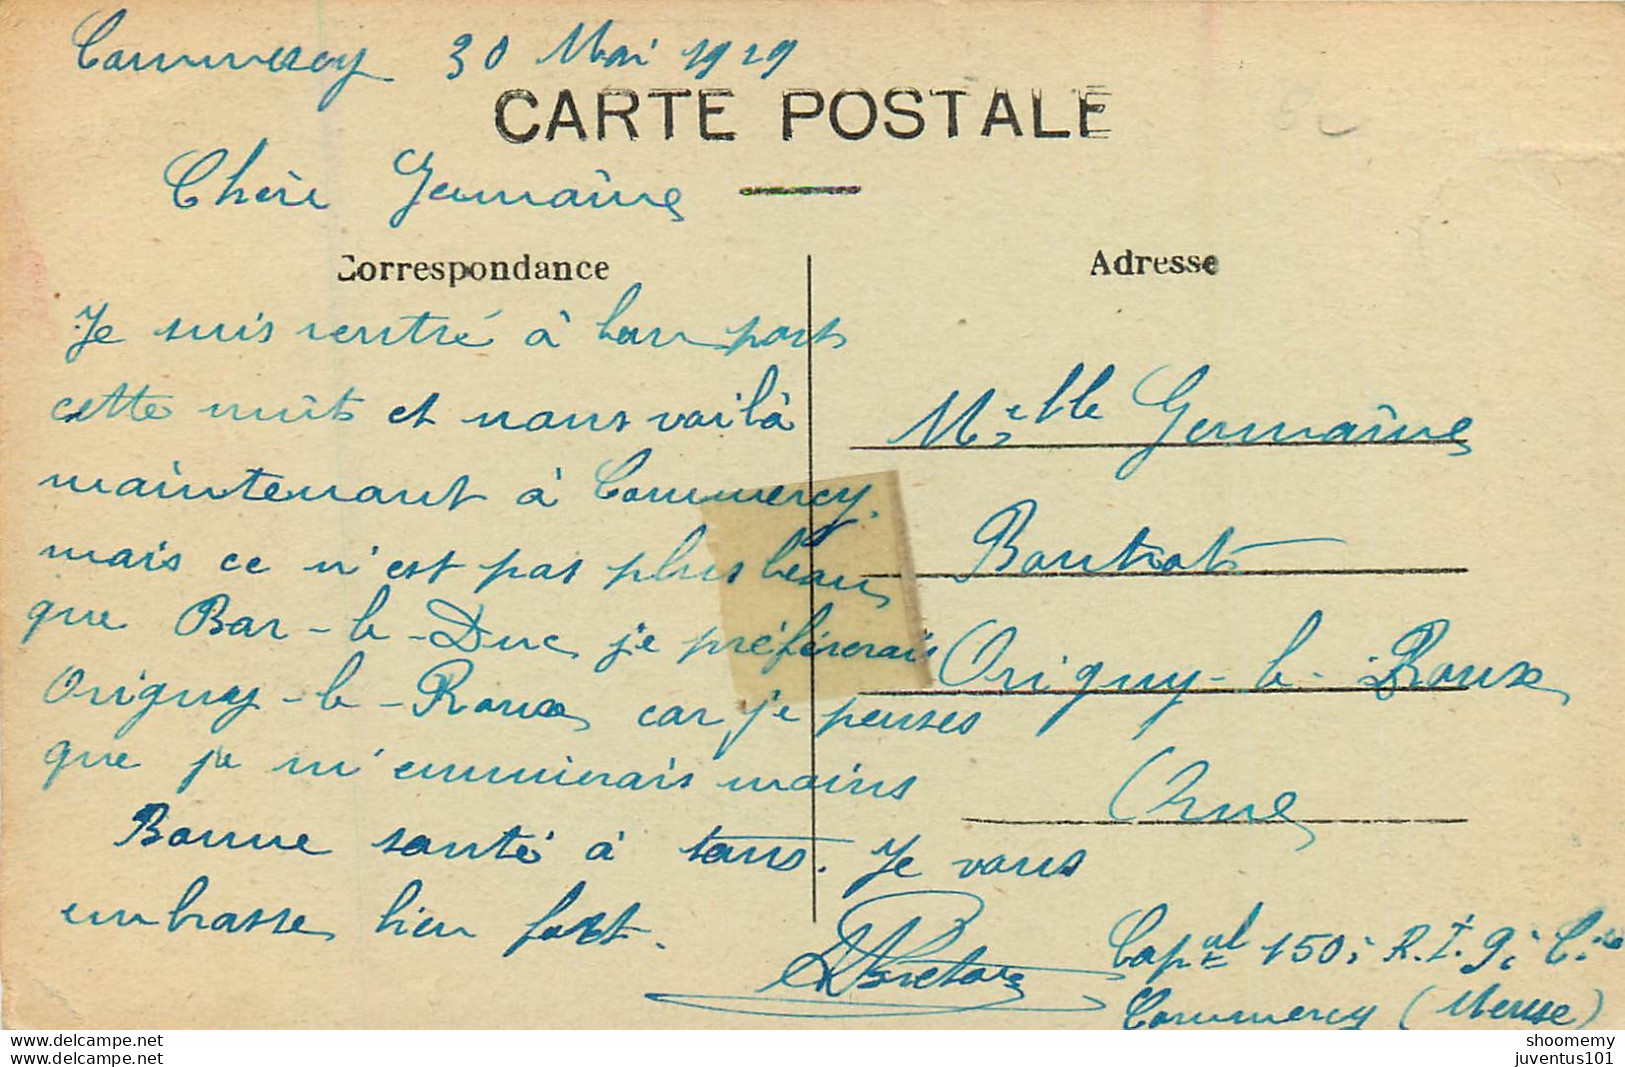 Commercy 30 Mai 1919
CARTE POSTALE
Chère Germaine
Correspondance
Je suis rentré à bon port
cette nuit et nous voilà
maintenant à Commercy.
mais ce n'est pas plus beau
que Bar-le-Duc je préférerais
Origny-le-Roux car je penses
que je m'ennuierais moins
Bonne santé à tous. Je vous
embrasse bien fort.
Adresse
Melle Germaine
Origny-le-Roux
Orne
Capal 150e R.I. 9e Cie
Commercy (Meuse)
www.delcampe.net
www.delcampe.net
shoomemy
juventus101